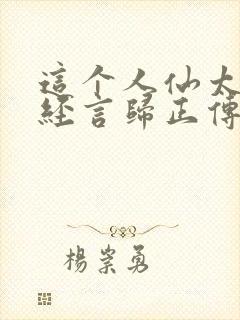 這个人仙太
經言歸正傳
楊崇勇